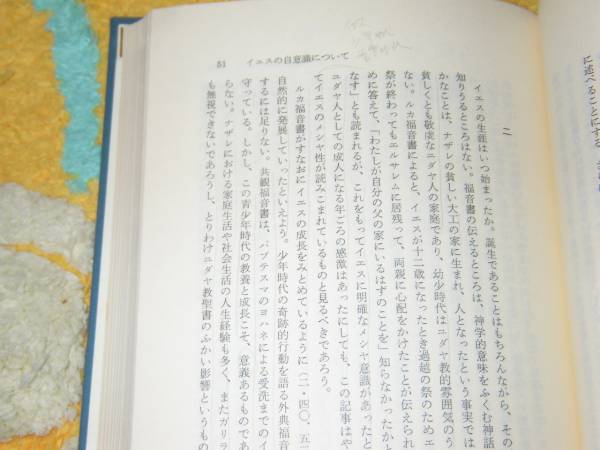 51 イエスの自意識について
に述べることにする
二
イエスの生涯はいつ始まったか。誕生であることはもちろんながら、その
知りうるところはない。福音書の伝えるところは、神学的意味をふくむ神話
かなことは、ナザレの貧しい大工の家に生まれ、人となったという事実では
貧しくとも敬虔なユダヤ人の家庭であり、幼少時代はユダヤ教的雰囲気のう
ない。ルカ福音書によると、イエスが十二歳になったとき過越の祭のためエ
祭が終わってもエルサレムに居残って、両親に心配をかけたことが伝えられ
めに答えて、「わたしが自分の父の家にいるはずのことを」知らなかったか
なす」とも読まれるが、これをもってイエスに明確なメシヤ意識があったと
ユダヤ人としての成人になる年ごろの感激はあったにしても、この記事はや
てイエスのメシヤ性が読みこまれているものと見るべきであろう。
ルカ福音書がすなおにイエスの成長をみとめているように（二・四〇、五二
自然的に発展していったといえよう。少年時代の奇跡的行動を語る外典福音
するには足りない。共観福音書は、バプテスマのヨハネによる受洗までのイ
守っている。しかし、この青少年時代の教養と成長こそ、意義あるものであ
らない。ナザレにおける家庭生活や社会生活の人生経験も多く、またガリラ
も無視できないであろうし、とりわけユダヤ教聖書のふかい影響というもの